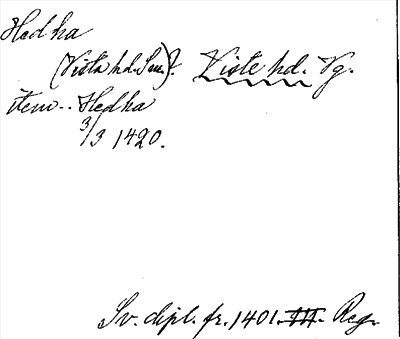 Hedha
(Vista hd. Sm.)? Viste hd. Vg.
item.. Hedha
3/3 1420.
Sv. dipl. fr. 1401. III. Reg.